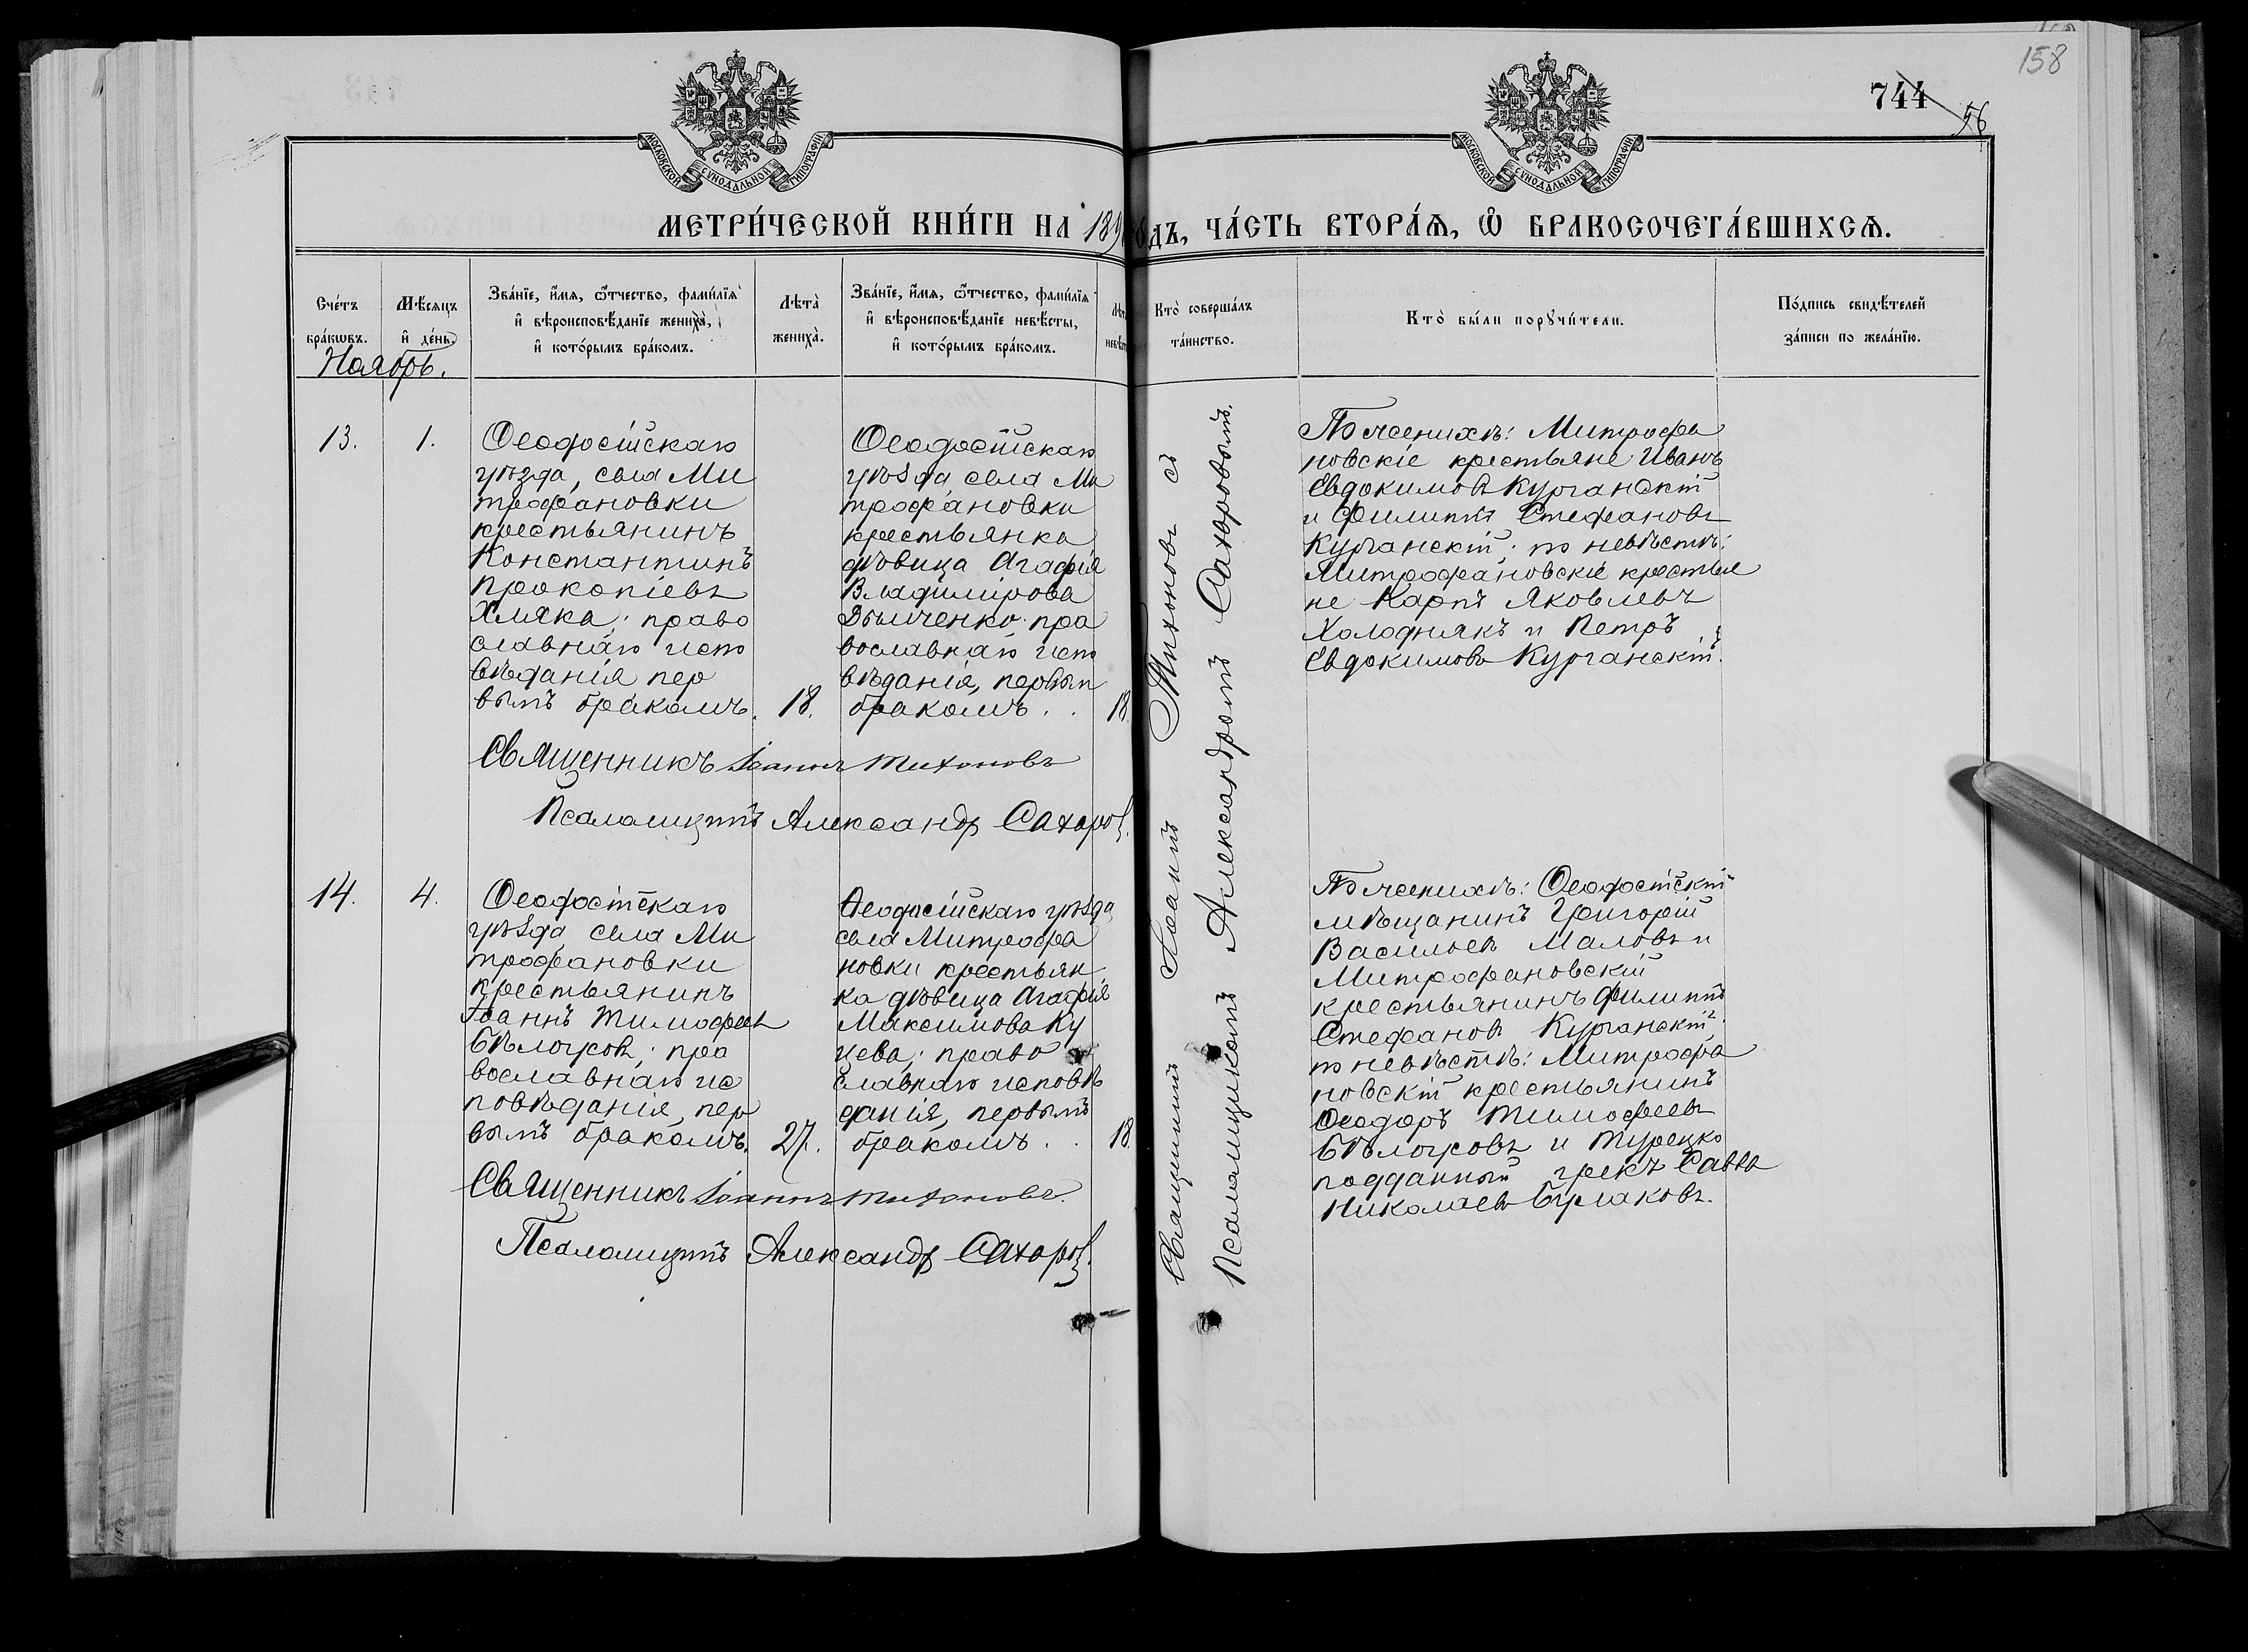 158
744
56
МОСКОВСКОЙ СѴНОДАЛЬНОЙ ТИПОГРАФІИ
МОСКОВСКОЙ СѴНОДАЛЬНОЙ ТИПОГРАФІИ
МЕТРИ́ЧЕСКОЙ КНИ́ГИ НА 189 ДЪ, ЧА́СТЬ ВТОРА́Ѧ, Ѿ БРАКОСОЧЕТА́ВШИХСѦ.
Сче́тъ бра́кѡвъ.
Мѣ́сяцъ и҆ де́нь.
Зва́нїе, и҆́мѧ, ѻ҆́тчество, фами́лїѧ и҆ вѣроисповѣ́данїе жениха̀, и҆ кото́рымъ бра́комъ.
Лѣта̀ жениха̀.
Зва́нїе, и҆́мѧ, ѻ҆́тчество, фами́лїѧ и҆ вѣроисповѣ́данїе невѣ́сты, и҆ кото́рымъ бра́комъ.
Кто̀ соверша́лъ та́инство.
Кто̀ бы́ли порꙋчи́тели.
По́дпись свидѣ́телей за́писи по жела́нїю.
Ноябрь.
13.
1.
Ѳеодосійскаго
уѣзда, села Ми
трофановки
крестьянинъ
Константинъ
Прокопіевъ
Хмяка; право
славнаго испо
вѣданія пер
вымъ бракомъ.
18.
Ѳеодосійскаго
уѣзда села Ми
трофановки
крестьянка
дѣвица Агафія
Владимірова
Дьяченко; пра
вославнаго испо
вѣданія, первым
бракомъ.
18.
Священникъ Іоаннъ Тихоновъ съ
Псаломщикомъ Александромъ Сахаровымъ.
По женихѣ: Митрофа
новскіе крестьяне Иванъ
Евдокимовъ Курганскій
и Филиппъ Стефановъ
Курганскій; по невѣстѣ:
Митрофановскіе крестья
не Карпъ Яковлевъ
Холоднякъ и Петръ
Евдокимовъ Курганскій.
Священникъ Іоаннъ Тихоновъ
Псаломщикъ Александр Сахаров.
14.
4.
Ѳеодосійскаго
уѣзда села Ми
трофановки
крестьянинъ
Іоаннъ Тимофеевъ
Бѣлоусовъ; пра
вославнаго ис
повѣданія, пер
вымъ бракомъ.
27.
Ѳеодосійскаго уѣзда
села Митрофа
новки крестьян
ка дѣвица Агафія
Максимова Ку
цева; право
славнаго исповѣ
данія, первымъ
бракомъ.
18.
По женихѣ: Ѳеодосійскій
мѣщанинъ Григорій
Васильевъ Маловъ и
Митрофановскій
крестьянинъ Филиппъ
Стефановъ Курганскій;
по невѣстѣ: Митрофа
новскій крестьянинъ
Ѳеодоръ Тимофеевъ
Бѣлоусовъ и Турецко
подданный грекъ Савва
Николаевъ Бурлаковъ.
Священникъ Іоаннъ Тихоновъ.
Псаломщикъ Александр Сахаров.